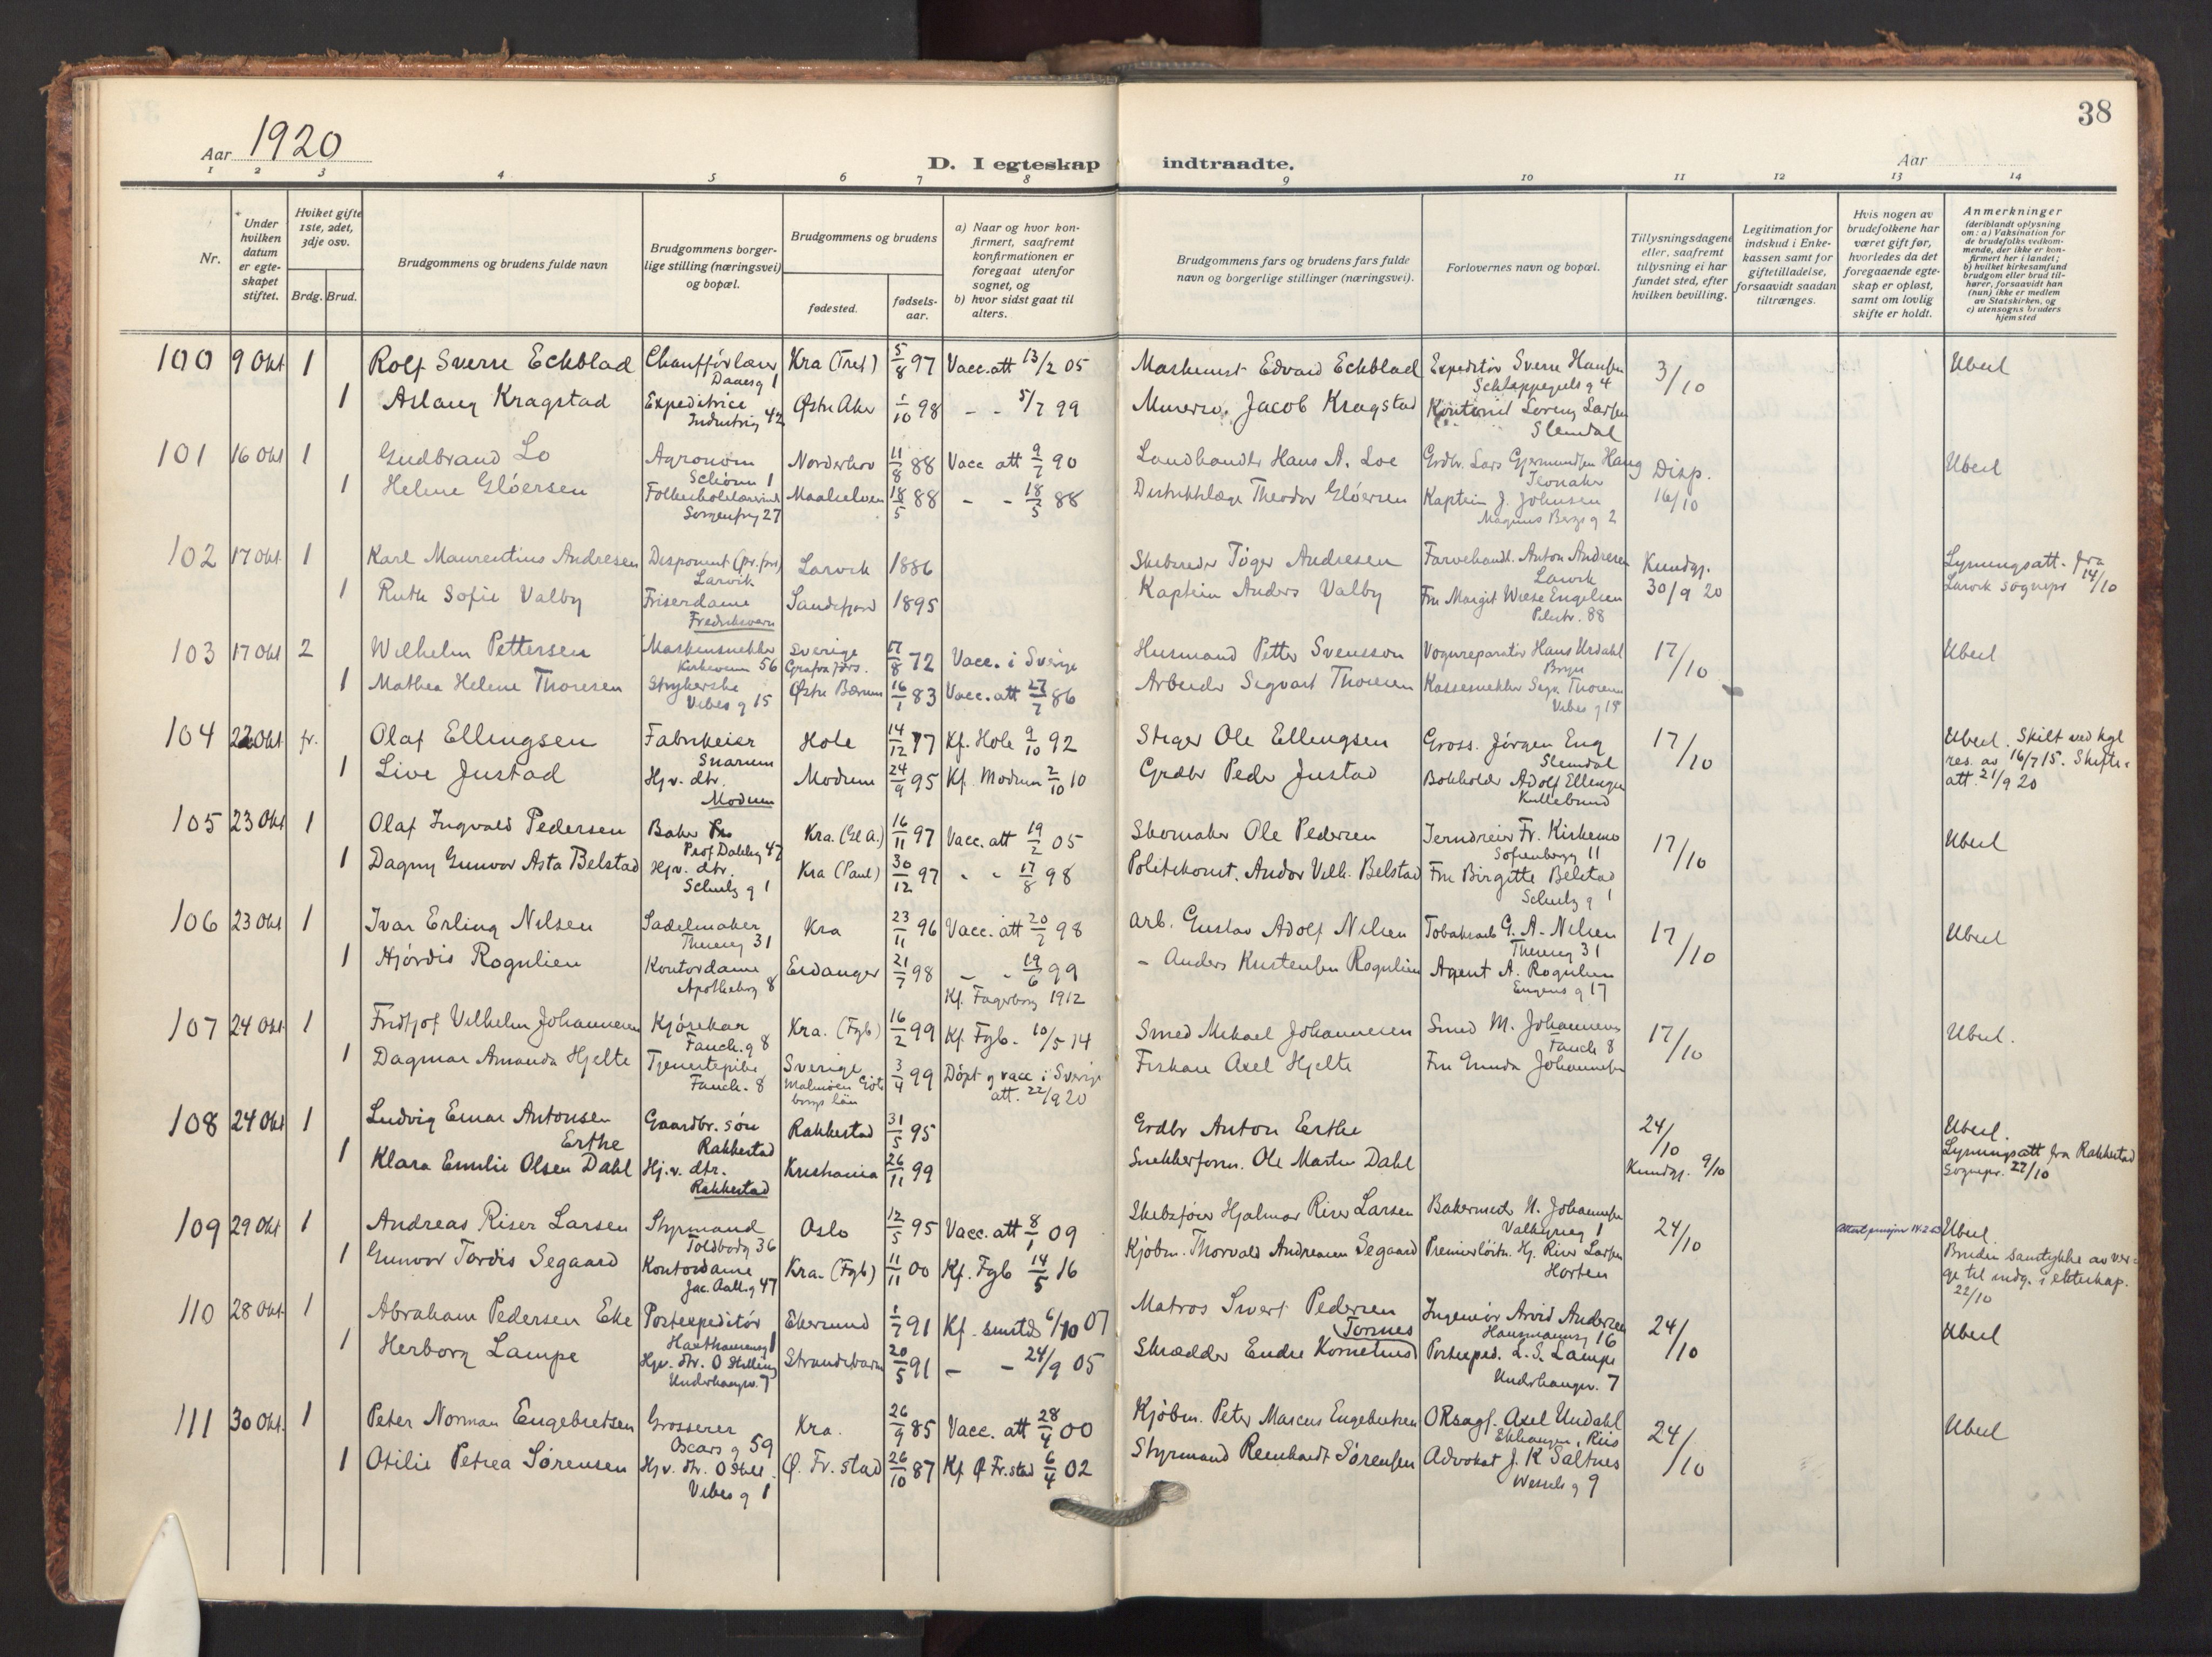 38
Aar 1920
D. I egteskap indtraadte.
Aar
1 2 3 4 5 6 7 8 9 10 11 12 13 14
Nr.
Under hvilken datum er egteskapet stiftet.
Hviket gifte 1ste, 2det, 3dje osv.
Brdg. Brud.
Brudgommens og brudens fulde navn
Brudgommens borgerlige stilling (næringsvei) og bopæl.
Brudgommens og brudens
fødested.
fødselsaar.
a) Naar og hvor konfirmert, saafremt konfirmationen er foregaat utenfor sognet, og
b) hvor sidst gaat til alters.
Brudgommens fars og brudens fars fulde navn og borgerlige stillinger (næringsvei).
Forlovernes navn og bopæl.
Tillysningsdagene eller, saafremt tillysning ei har fundet sted, efter hvilken bevilling.
Legitimation for indskud i Enkekassen samt for giftetilladelse, forsaavidt saadan tiltrænges.
Hvis nogen av brudefolkene har været gift før, hvorledes da det foregaaende egteskap er opløst, samt om lovlig skifte er holdt.
Anmerkninger (deriblandt oplysning om: a) Vaksination for de brudefolks vedkommende, der ikke er konfirmert her i landet; b) hvilket kirkesamfund brudgom eller brud tilhører, forsaavidt han (hun) ikke er medlem av Statskirken, og c) utensogns bruders hjemsted
100 9 Okt 1 Rolf Sverre Eckblad Chaufförlærer Daaesg 1 Kra (Tref) 5/8 97 Vacc. att 13/2 05 Maskinist Edvard Eckblad Expeditør Sverre Hansen Schleppegrels g 4 3/10 Ubesl
1 Aslaug Kragstad Expeditrice Industrig 42 Østre Aker 1/10 98 - - 5/7 99 Murersv. Jacob Kragstad Kontorist Larsen Slemdal
101 16 Okt 1 Gudbrand Lo Agronom Norderhov 11/8 88 Vacc att 9/7 90 Landhandler Hans A. Loe Grdbr. Lars Gjermundsen Haug Disp. 16/10 Ubesl
1 Helene Gløersen Sorgenfrig 27 Maalselven 18/5 88 - - 18/5 88 Distriktslæge Theodor Gløersen Kaptein J. Johnsen Magnus Bergs g 2
102 17 Okt 1 Karl Maurentius Andresen Disponent Larvik Larvik 1886 Skibsreder Tøger Andresen Farvehandl. Anton Andresen Larvik Kundgj. 30/9 20 Lysningsatt. fra Larvik sognepr 14/10
1 Ruth Sofie Valby Friserdame Fredriksværn Sandefjord 1895 Kaptein Anders Valby Fru Margit Wiese Engelsen Pilestr. 88
103 17 Okt 2 Wilhelm Pettersen Maskinsnekker Kirkeveien 56 Sverige 17/8 72 Vacc. i Sverige Husmand Petter Svensson Vognreparatør Hans Urdahl 17/10 Ubesl
1 Mathea Helene Thoresen Strykerske Vibes g 15 Østre Bærum 16/1 83 Vacc. att 27/7 86 Arbeider Sigvart Thoresen Kassesnekker Sigv. Thoresen Vibes g 15
104 22 Okt fr. Olaf Ellingsen Fabrikeier Snarum Hole 14/12 77 Kf. Hole 9/10 92 Stiger Ole Ellingsen Gross. Jørgen Eng Slemdal 17/10 Ubesl. Skilt ved kgl res. av 16/7 15. Skifteatt. 21/9 20
1 Live Justad Hj.v. dtr. Modum Modum 24/9 95 Kf. Modum 2/10 10 Grdbr Peder Justad Bokholder Adolf Ellingsen Kullebund
105 23 Okt 1 Olaf Ingvald Pedersen Baker Prof Dahlsg 47 Kra. (Gl A.) 16/11 97 Vacc. att 19/2 05 Skomaker Ole Pedersen Jerndreier Fr. Kirkemo Sofienbergg 11 17/10 Ubesl
1 Dagny Gunvor Asta Belstad Hj.v. dtr. Schultz g 1 Kra (Paul) 30/12 97 - - 17/8 98 Politikonst. Andor Vilh. Belstad Fru Birgitte Belstad Schultz g 1
106 23 Okt 1 Ivar Erling Nilsen Sadelmaker Thereseg 31 Kra 23/11 96 Vacc. att 20/7 98 arb. Gustav Adolf Nilsen Tobaksarb G. A. Nilsen Thereseg 31 17/10 Ubesl
1 Hjørdis Rognlien Kontordame Apothekerg 8 Eidanger 21/7 98 - - 19/6 99 Kf. Fagerborg 1912 - Anders Kristensen Rognlien Agent A. Rognlien Eugenis g 17
107 24 Okt 1 Fridtjof Vilhelm Johannesen Kjørekar Fauch. g 8 Kra. (Fgb) 16/2 99 Kf. Fgb. 10/5 14 Smed Mikael Johannesen Smed M. Johannesen Fauch 8 17/10 Ubesl.
1 Dagmar Amanda Hjelte Tjenestepike Fauch. 8 Sverige Malmøen Götborgs län 3/4 99 Döpt og vacc i Sverige att. 22/9 20 Fiskare Axel Hjelte Fru Gunda Johannesen
108 24 Okt 1 Ludvig Einar Antonsen Erthe Gaardbr. søn Rakkestad Rakkestad 31/5 95 Grdbr Anton Erthe 24/10 Ubesl.
1 Klara Emilie Olsen Dahl Hj.v. dtr. Rakkestad Kristiania 26/11 99 Snekkerform. Ole Martin Dahl Kundgj. 9/10 Lysningsatt fra Rakkestad Sognepr. 22/10
109 29 Okt 1 Andreas Riser Larsen Styrmand Toldbodg 36 Oslo 12/5 95 Vacc. att 8/1 09 Skibsfører Hjalmar Riser Larsen Bakermester N. Johannesen Valkyrieg 1 24/10 Ubesl.
1 Gunvor Tordis Segaard Kontordame Jac. Aalls g 47 Kra. (Fgb) 11/11 00 Kf. Fgb 14/5 16 Kjøbm. Thorvald Andreasen Segaard Premierløitn. Hj. Riiser Larsen Horten Bruden samtykke av verge til indg. i ekteskap. 22/10
110 28 Okt. 1 Abraham Pedersen Eike Postexpeditør Ekersund 1/7 91 Kf. smstds 6/10 07 Matros Sivert Pedersen Tornes Ingeniør Arvid Andersen Hausmannsg 16 24/10 Ubesl
1 Herborg Lampe Hjv. dtr. O Stilling Underhaugsv. 7 Strandebarm 20/5 91 - - 24/9 05 Skrædder Endre Kornelius Postexped. L. S. Lampe Underhaugsv. 7
111 30 Okt. 1 Peter Norman Engebretsen Grosserer Oscars g 59 Kra. 26/9 85 Vacc. att 28/4 00 Kjøbm. Peter Marcus Engebretsen ORsagf. Axel Undahl Ekhaugen, Riis 24/10 Ubesl
1 Otilie Petrea Sørensen Hj v. dtr. O Still. Vibes g 1 Ø. Fr. stad 26/10 87 Kf Ø Fr.stad 6/4 02 Styrmand Reinhardt Sørensen Advokat J. K Saltnes Wessels g 9